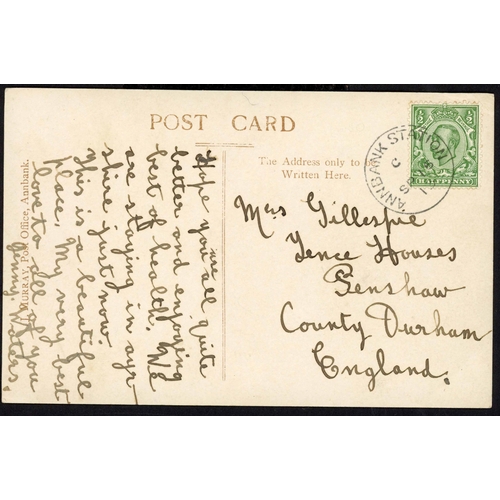 POST CARD
The Address only to be
Written Here.
ANNBANK STATION
HALFPENNY
Hope you are all quite
better and enjoying
best of health. We
are staying in ayr-
shire just now
this is a beautiful
place. My very best
love to all of you
Jenny Waters.
MURRAY, Post Office, Annbank.
Mrs Gillespie
Fence Houses
Penshaw
County Durham
England.